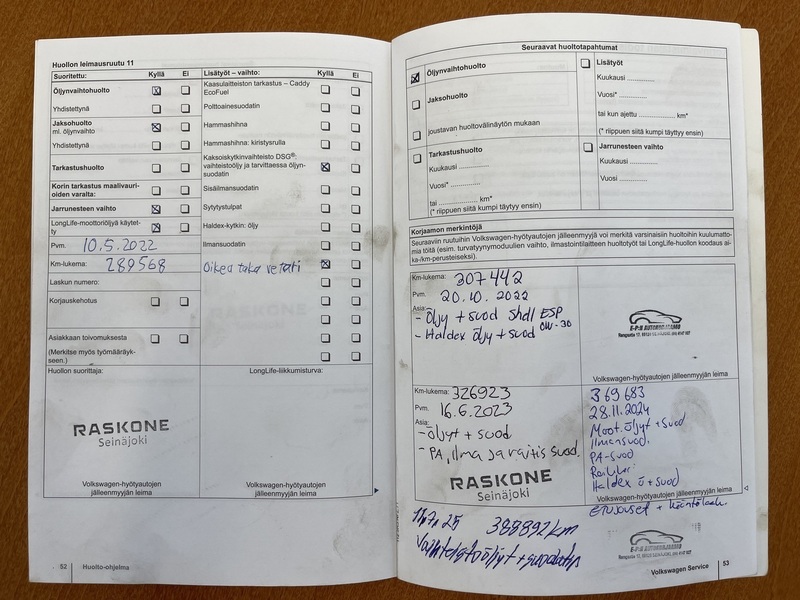 Huollon leimausruutu 11
Suoritettu: Kyllä Ei
Öljynvaihtohuolto
Yhdistettynä
Jaksohuolto
ml. öljynvaihto
Yhdistettynä
Tarkastushuolto
Korin tarkastus maalivauri-
oiden varalta:
Jarrunesteen vaihto
LongLife-moottoriöljyä käytet-
ty
Pvm. 10.5.2022
Km-lukema: 289568
Laskun numero:
Korjauskehotus
Asiakkaan toivomuksesta
(Merkitse myös työmääräyk-
seen.)
Lisätyöt – vaihto: Kyllä Ei
Kaasulaitteiston tarkastus – Caddy
EcoFuel
Polttoainesuodatin
Hammashihna
Hammashihna: kiristysrulla
Kaksoiskytkinvaihteisto DSG®:
vaihteistoöljy ja tarvittaessa öljyn-
suodatin
Sisäilmansuodatin
Sytytystulpat
Haldex-kytkin: öljy
Ilmansuodatin
Oikea taka vetari
Huollon suorittaja:
RASKONE
Seinäjoki
Volkswagen-hyötyautojen
jälleenmyyjän leima
LongLife-liikkumisturva:
Volkswagen-hyötyautojen
jälleenmyyjän leima
52 Huolto-ohjelma
Seuraavat huoltotapahtumat
Öljynvaihtohuolto
Jaksohuolto
joustavan huoltovälinäytön mukaan
Tarkastushuolto
Kuukausi ...............
Vuosi* ...............
tai ............... km*
(* riippuen siitä kumpi täytyy ensin)
Lisätyöt
Kuukausi ...............
Vuosi* ...............
tai kun ajettu ............... km*
(* riippuen siitä kumpi täytyy ensin)
Jarrunesteen vaihto
Kuukausi ...............
Vuosi ...............
Korjaamon merkintöjä
Seuraaviin ruutuihin Volkswagen-hyötyautojen jälleenmyyjä voi merkitä varsinaisiin huoltoihin kuulumatto-
mia töitä (esim. turvatyynymoduulien vaihto, ilmastointilaitteen huoltotyöt tai LongLife-huollon koodaus ai-
ka-/km-perusteiseksi).
Km-lukema: 307442
Pvm. 20.10.2022
Asia:
- Öljy + suod Shell ESP
0W-30
- Haldex öljy + suod
E-P:N AUTOKORJAAMO
Volkswagen-hyötyautojen
jälleenmyyjän leima
Km-lukema: 326923
Pvm. 16.6.2023
Asia:
- öljyt + suod
- PA, ilma ja raitis suod.
RASKONE
Seinäjoki
369683
28.11.2024
Moot. öljyt + suod
Ilmansuod.
PA-suod
Haldex ö + suod
Volkswagen-hyötyautojen
jälleenmyyjän leima
11.7.25 388892 km
Vaihteistoöljyt + suodatin
E-P:N AUTOKORJAAMO
Volkswagen Service 53